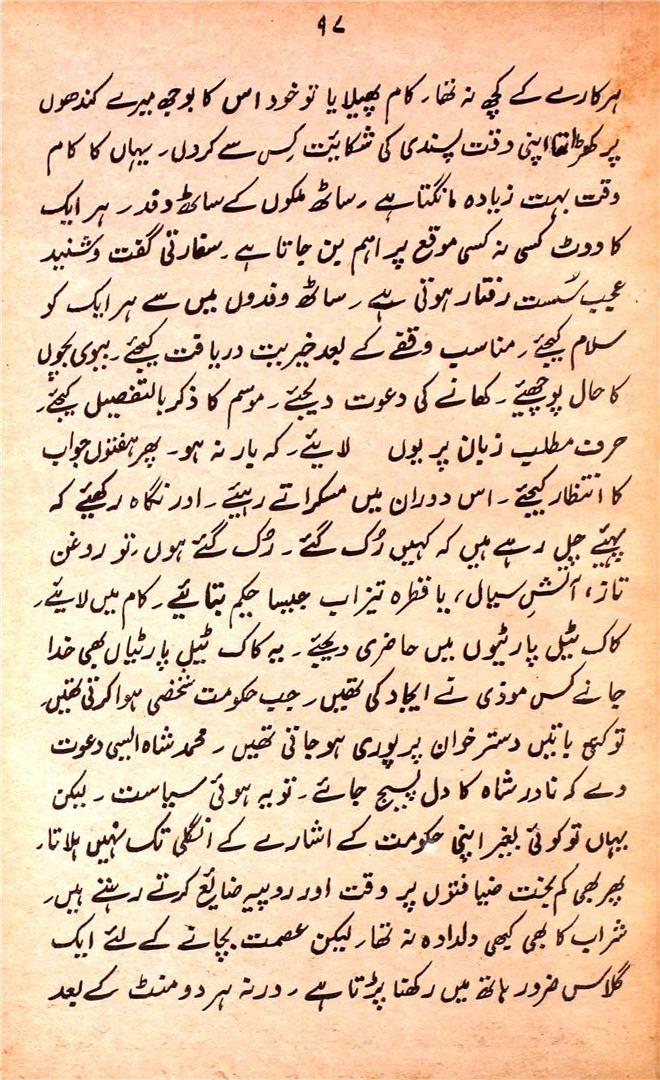 ۹۷
ہرکارے کے کچھ نہ تھا۔ کام پھیلایا تو خود اس کا بوجھ میرے کندھوں
پر اپنی دقت پسندی کی شکایت کِس سے کردں۔ یہاں کا کام
وقت بہت زیادہ مانگتا ہے۔ ساٹھ ملکوں کے ساٹھ وفد۔ ہر ایک
کا ووٹ کسی نہ کسی موقع پر اہم بن جاتا ہے۔ سفارتی گفت و شنید
عجیب سُست رفتار ہوتی ہے۔ ساٹھ وفدوں میں سے ہر ایک کو
سلام کیجئے۔ مناسب وقفے کے بعد خیریت دریافت کیجئے۔ بیوی بچوں
کا حال پوچھیئے۔ کھانے کی دعوت دیجئے۔ موسم کا ذکر بالتفصیل کیجئے۔
حرف مطلب زبان پر یوں لایئے۔ کہ بار نہ ہو۔ پھر ہفتوں جواب
کا انتظار کیجئے۔ اس دوران میں مسکراتے رہیئے۔ اور نگاہ رکھیئے کہ
پہیئے چل رہے ہیں کہ کہیں رُک گئے۔ رُک گئے ہوں۔ تو روغن
تاز، آتشِ سیال، یا قطرہ تیزاب جیسا حکیم بتائیے۔ کام میں لایئے۔
کاک ٹیل پارٹیوں میں حاضری دیجئے۔ یہ کاک ٹیل پارٹیاں بھی خدا
جانے کس موذی نے ایجاد کی تھیں۔ جب حکومت شخصی ہوا کرتی تھیں۔
تو کبھی باتیں دسترخوان پر پوری ہو جاتی تھیں۔ محمد شاہ ایسی دعوت
دے کہ نادر شاہ کا دل پسیج جائے۔ تو یہ ہوئی سیاست۔ لیکن
یہاں تو کوئی بغیر اپنی حکومت کے اشارے کے انگلی تک نہیں ہلاتا۔
پھر بھی کم بخت ضیافتوں پر وقت اور روپیہ ضایع کرتے رہتے ہیں۔
شراب کا بھی کبھی دلدادہ نہ تھا۔ لیکن عصمت بچانے کے لئے ایک
گلاس ضرور ہاتھ میں رکھنا پڑتا ہے۔ ورنہ ہر دو منٹ کے بعد